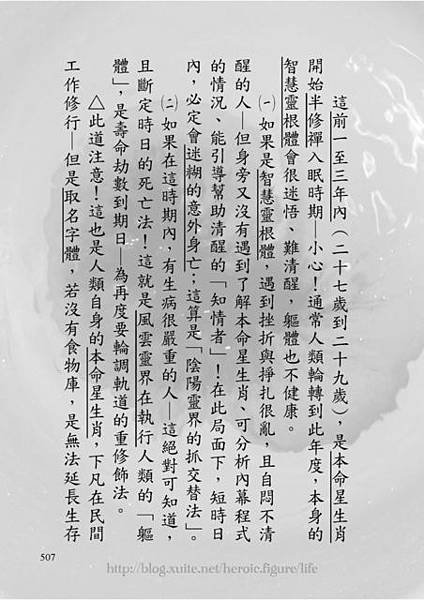 這前一至三年內（二十七歲到二十九歲），是本命星生肖
開始半修禪入眠時期—小心！通常人類輪轉到此年度，本身的
智慧靈根體會很迷悟、難清醒，軀體也不健康。
㈠如果是智慧靈根體，遇到挫折與掙扎很亂，且自悶不清
醒的人—但身旁又沒有遇到了解本命星生肖、可分析內幕程式
的情況、能引導幫助清醒的「知情者」！在此局面下，短時日
內，必定會迷糊的意外身亡；這算是「陰陽靈界的抓交替法」。
㈡如果在這時期內，有生病很嚴重的人—這絕對可知道，
且斷定時日的死亡法！這就是風雲靈界在執行人類的「軀
體」，是壽命劫數到期日—為再度要輪調軌道的重修飾法。
△此道注意！這也是人類自身的本命星生肖，下凡在民間
工作修行—但是取名字體，若沒有食物庫，是無法延長生存
507
http://blog.xuite.net/heroic.figure/life